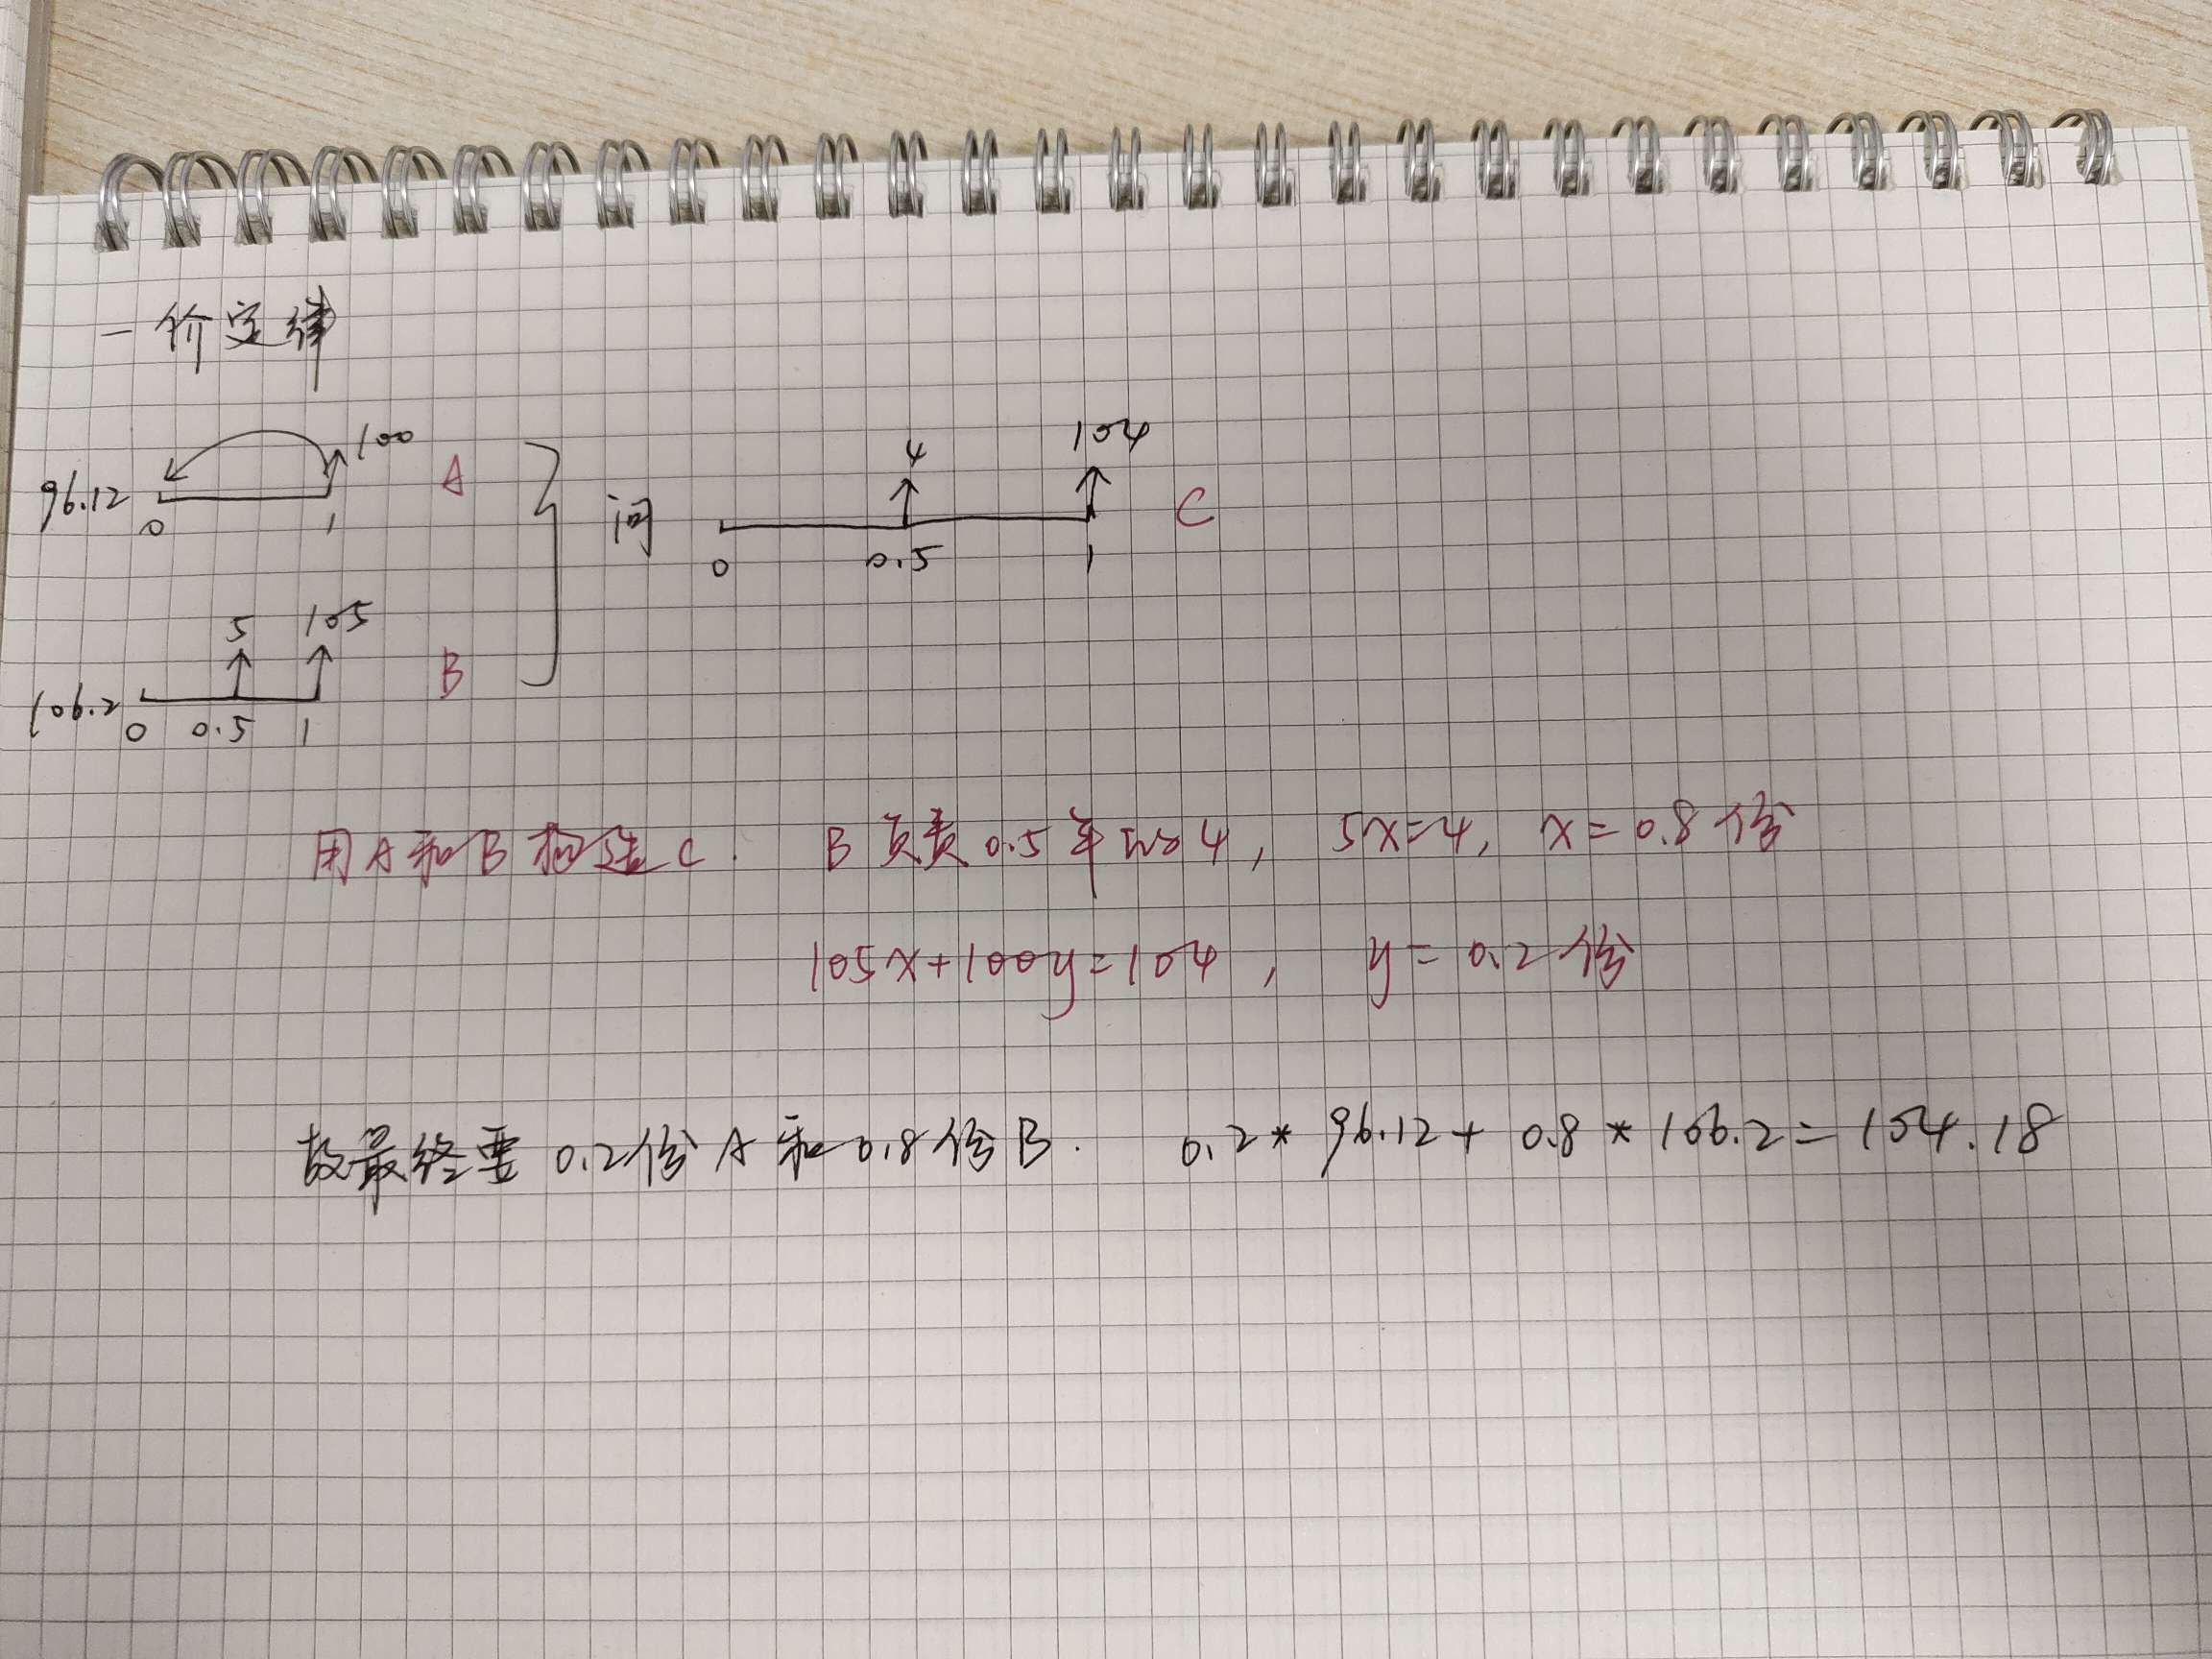 一价定律
100
96.12
0 1
A
5 105
106.2
0 0.5 1
B
问
4 104
0 0.5 1
C
用A和B构造C. B负责0.5年的4, 5x=4, x=0.8份
105x+100y=104, y=0.2份
故最终要0.2份A和0.8份B. 0.2*96.12+0.8*106.2=104.18